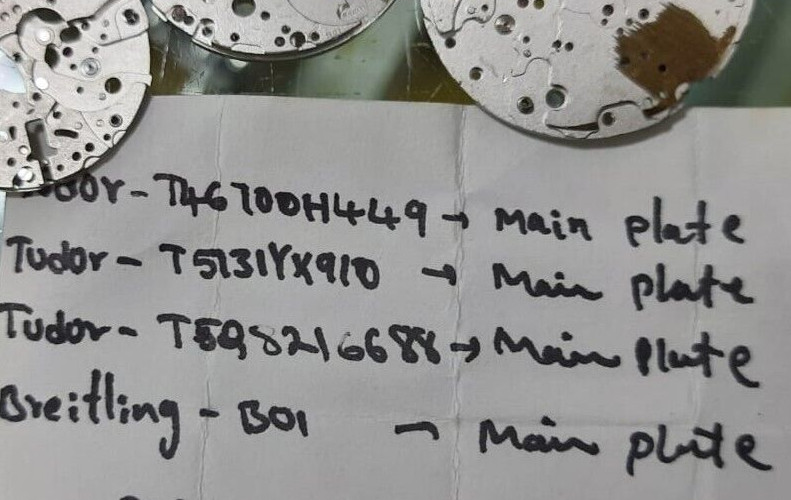 Tudor - T46700H449 → Main plate
Tudor - T5131YX910 → Main plate
Tudor - T5Q8216688 → Main Plate
Breitling - B01 - Main plate